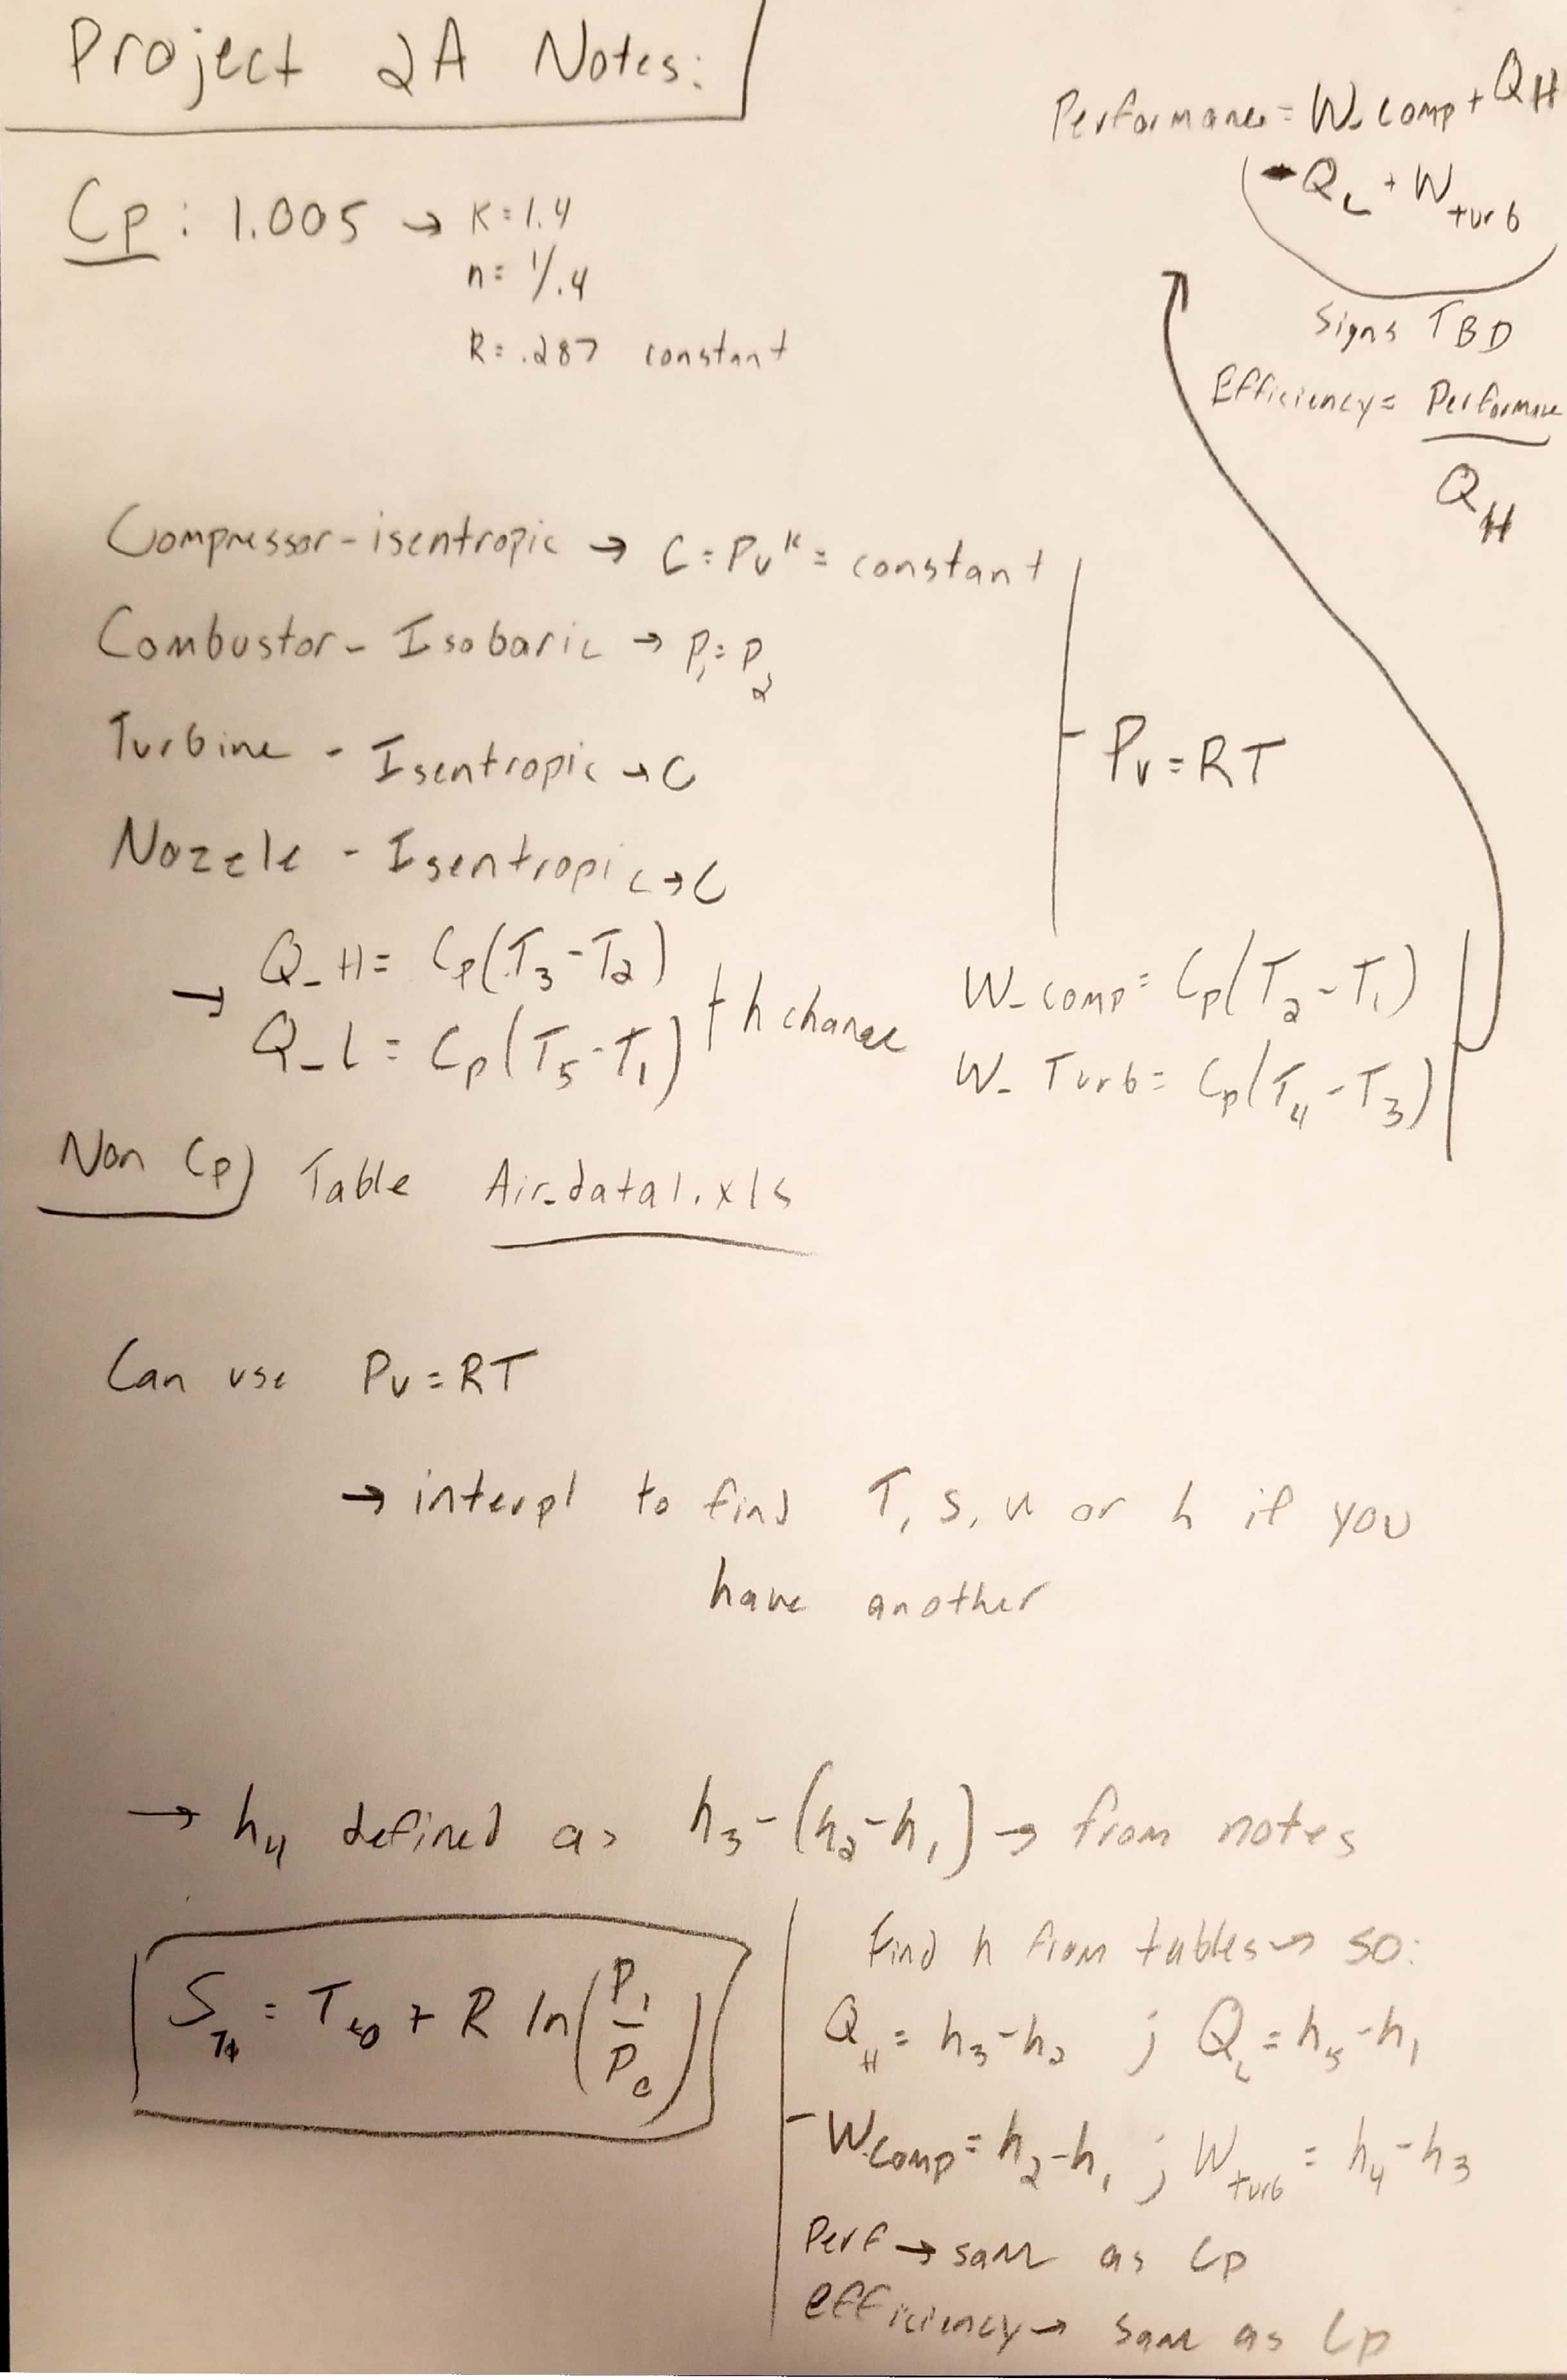 Project 2A Notes:
Performance = W_comp + QH
-QL + Wturb
Signs TBD
Efficiency = Performance
QH
Cp: 1.005 → K=1.4
n= 1/.4
R= .287 constant
Compressor-isentropic → C=Pv^k = constant
Combustor- Isobaric → P1=P2
Turbine - Isentropic → C
Nozzle - Isentropic → C
Pv=RT
→ Q_H= Cp(T3-T2)
Q_L = Cp(T5-T1)
h change
W_comp= Cp(T2-T1)
W_Turb= Cp(T4-T3)
Non Cp) Table Air_data1.xls
Can use Pv=RT
→ interp1 to find T, s, u or h if you
have another
→ h4 defined as h3-(h2-h1) → from notes
= T + R ln(P1/P0)
Find h from tables → so:
QH = h3-h2 ; QL = h5-h1
Wcomp = h2-h1 ; Wturb = h4-h3
Perf → same as Cp
efficiency → same as Cp